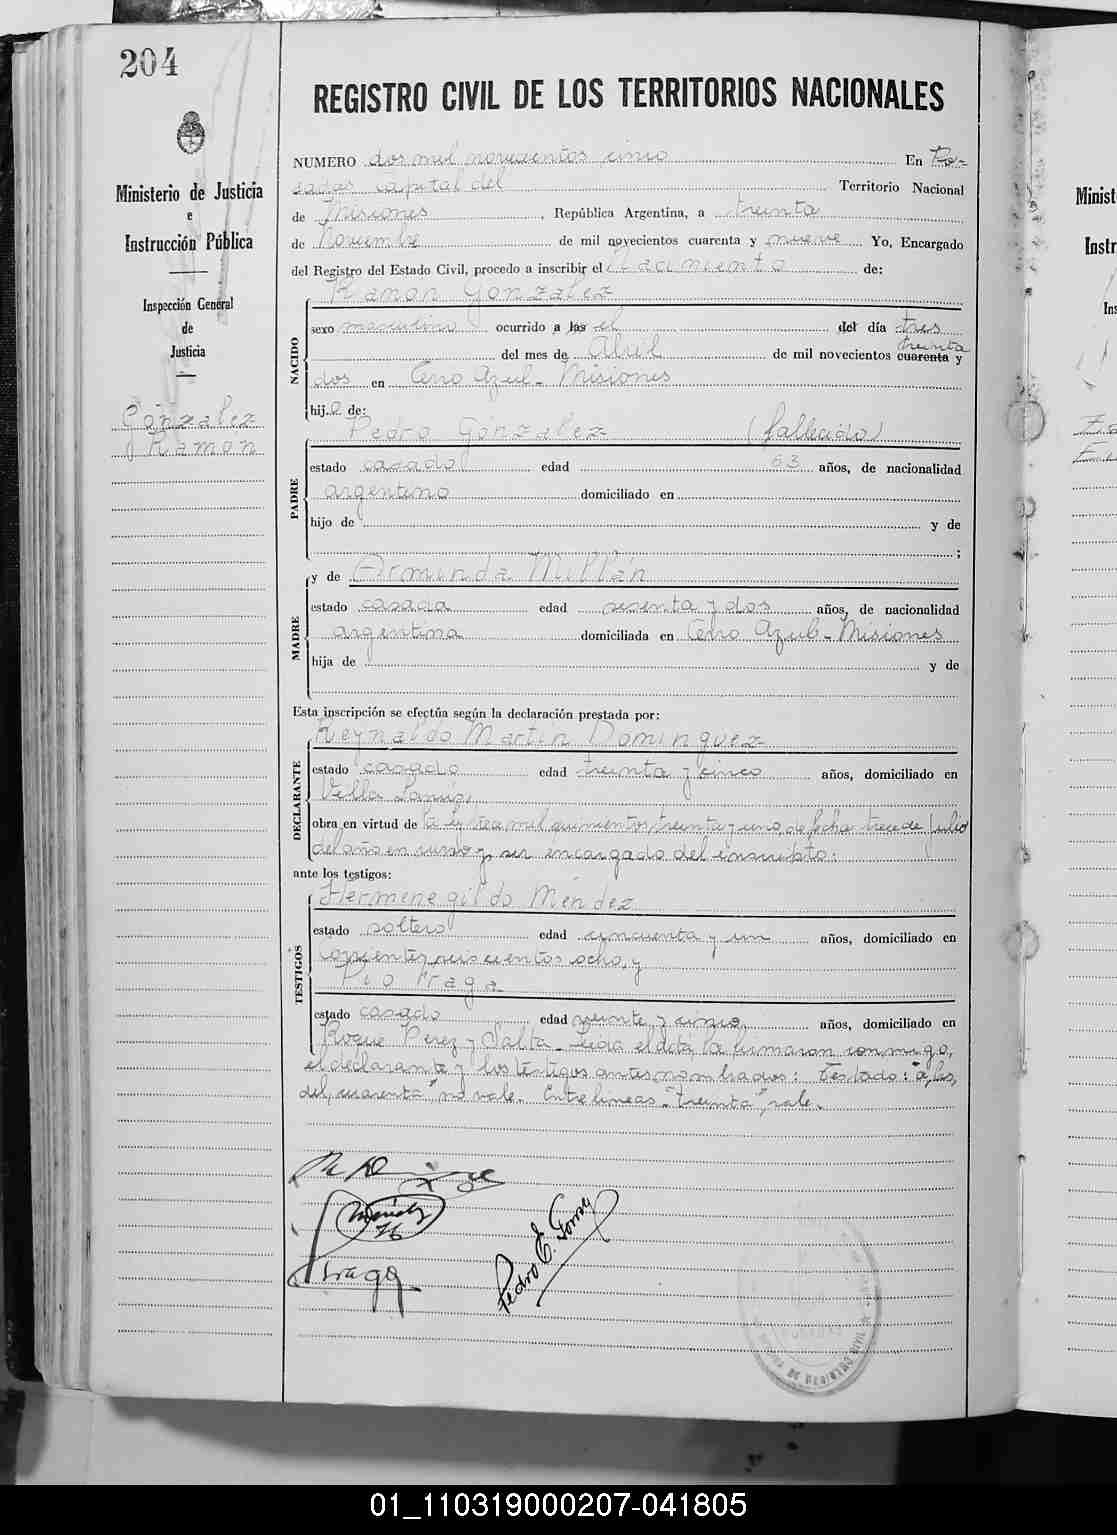 204
REGISTRO CIVIL DE LOS TERRITORIOS NACIONALES
Ministerio de Justicia
e
Instrucción Pública
Inspección General
de
Justicia
González
Ramón
NUMERO dos mil novecientos cinco En Po-
sadas capital del Territorio Nacional
de Misiones, República Argentina, a treinta
de Noviembre de mil novecientos cuarenta y nueve Yo, Encargado
del Registro del Estado Civil, procedo a inscribir el Nacimiento de:
Ramón González
NACIDO
sexo masculino ocurrido a las el del día tres
treinta
del mes de Abril de mil novecientos cuarenta y
dos en Cerro Azul - Misiones
hijo de:
Pedro González (fallecido)
PADRE
estado casado edad 63 años, de nacionalidad
argentino domiciliado en
hijo de y de
;
y de Arminda Millán
MADRE
estado casada edad sesenta y dos años, de nacionalidad
argentina domiciliada en Cerro Azul - Misiones
hija de y de
Esta inscripción se efectúa según la declaración prestada por:
Reynaldo Martín Domínguez
DECLARANTE
estado casado edad treinta y cinco años, domiciliado en
Villa Lanús,
obra en virtud de la ley trece mil quinientos treinta y uno, de fecha trece de julio
del año en curso y ser encargado del inscripto:
ante los testigos:
Hermenegildo Méndez
TESTIGOS
estado soltero edad cincuenta y un años, domiciliado en
corrientes seiscientos ocho, y
Pío Fraga
estado casado edad veinte y cinco años, domiciliado en
Roque Pérez y Salta. Leída el acta, la firmaron conmigo,
el declarante y los testigos antes nombrados: Testado: "a, las,
del, cuarenta" no vale. Entre líneas - "treinta", vale.
Méndez
Fraga
Pedro E.
REGISTRO CIVIL
01_110319000207-041805
Minist
Instr
Ins